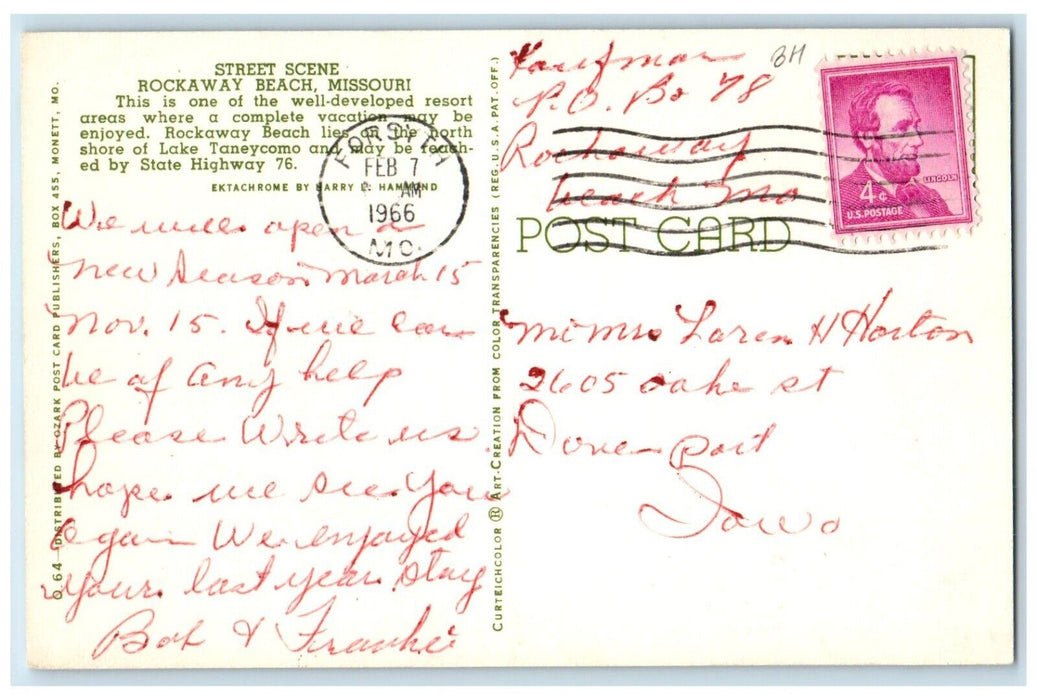 STREET SCENE
ROCKAWAY BEACH, MISSOURI
This is one of the well-developed resort
areas where a complete vacation may be
enjoyed. Rockaway Beach lies on the north
shore of Lake Taneycomo and may be reach-
ed by State Highway 76.
EKTACHROME BY LARRY D. HAMMOND
FORSYTH
FEB 7
AM
1966
MO.
We will open a
new season March 15
Nov. 15. If we can
be of any help
Please Write us
hope we see you
again We enjoyed
your last year stay
Bob & Frankie
O-64—DISTRIBUTED BY OZARK POST CARD PUBLISHERS, BOX 455, MONETT, MO.
CURTEICHCOLOR ® ART-CREATION FROM COLOR TRANSPARENCIES (REG. U.S.A. PAT. OFF.)
Kaufman
P.O. Bo 78
Rockaway
beach Mo
BH
LINCOLN
4¢
U.S. POSTAGE
POST CARD
Mr Mrs Loren H Horton
2605 oake st
Davenport
Iowa